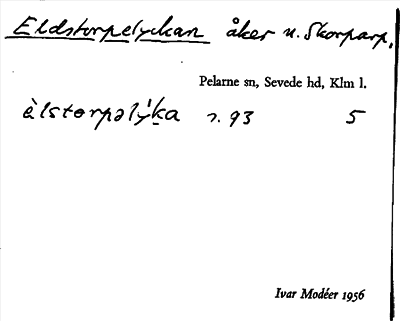 Eldstorpelyckan åker n. Skorparp.
Pelarne sn, Sevede hd, Klm l.
èlstorpəlýka 2.93 5
Ivar Modéer 1956